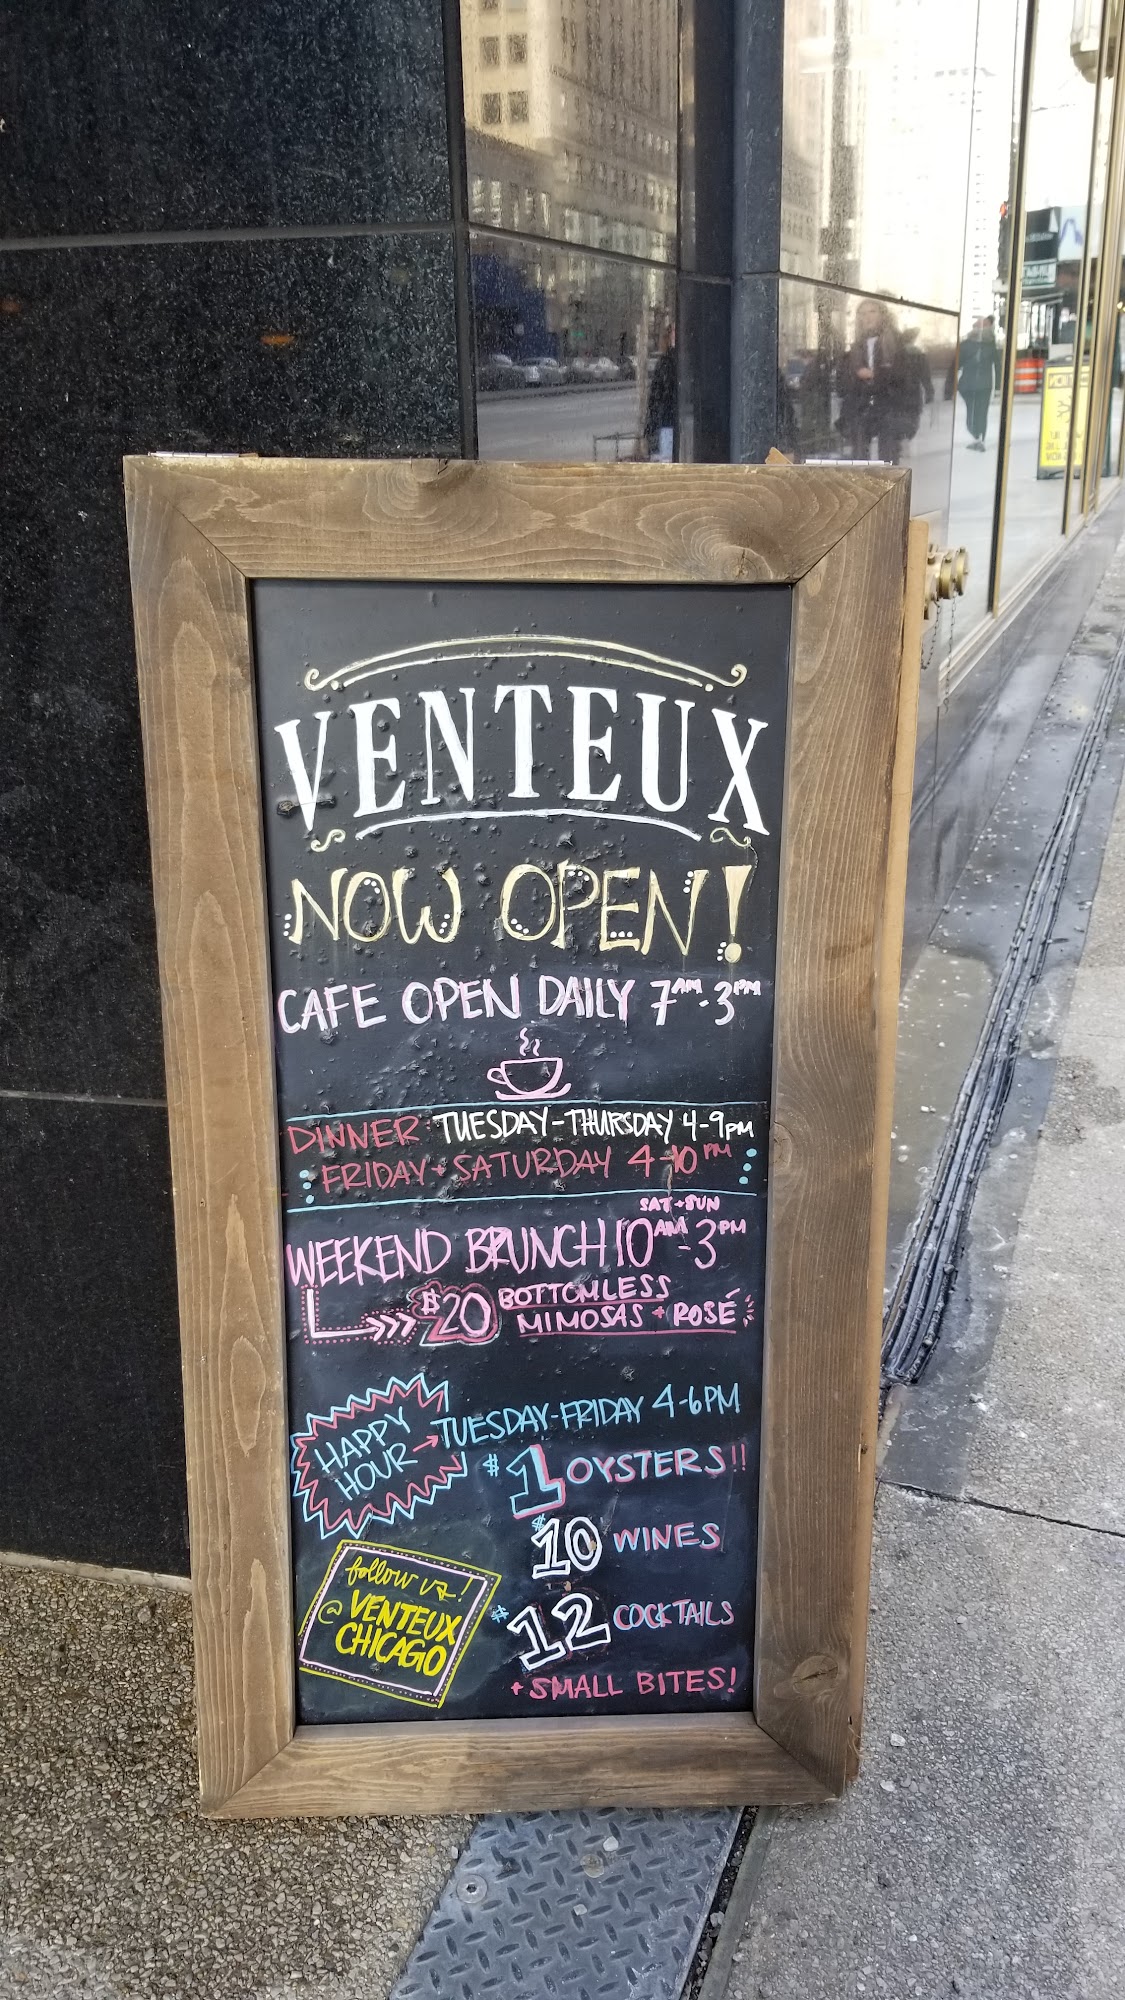 VENTEUX
NOW OPEN!
CAFE OPEN DAILY 7AM-3PM
DINNER: TUESDAY-THURSDAY 4-9PM
FRIDAY + SATURDAY 4-10PM
SAT + SUN
WEEKEND BRUNCH 10AM-3PM
$20 BOTTOMLESS
MIMOSAS + ROSÉ
HAPPY
HOUR → TUESDAY-FRIDAY 4-6PM
$1 OYSTERS!!
$10 WINES
$12 COCKTAILS
+ SMALL BITES!
follow us!
@ VENTEUX
CHICAGO